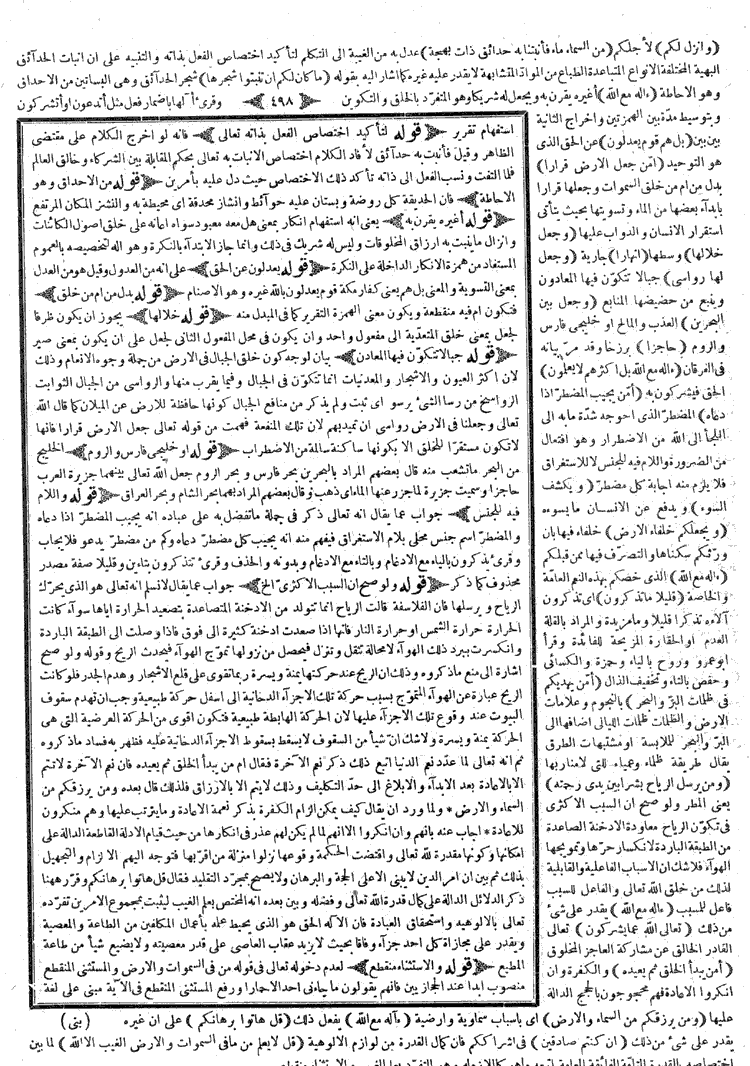 (وانزل لكم) لأجلكم (من السماء ماء فأنبتنا به حدائق ذات بهجة) عدل به من الغيبة الى التكلم لتأكيد اختصاص الفعل بذاته والتنبيه على ان انبات الحدآئق
البهية المختلفة الانواع المتباعدة الطباع من المواد المتشابهة لا يقدر عليه غيره كما اشار اليه بقوله (ما كان لكم ان تنبتوا شجرها) شجر الحدآئق وهى البساتين من الاحداق
وهو الاحاطة (ءاله مع الله) أغيره يقرن به ويجعل له شريكا وهو المتفرّد بالخلق والتكوين ٤٩٨ وقرئ ألها باضمار فعل مثل أتدعون او أتشركون
وبتوسيط مدّة بين الهمزتين واخراج الثانية
بين بين (بل هم قوم يعدلون) عن الحق الذى
هو التوحيد (امّن جعل الارض قرارا)
بدل من ام من خلق السموات وجعلها قرارا
بابدآء بعضها من الماء وتسويتها بحيث يتأتى
استقرار الانسان والدواب عليها (وجعل
خلالها) وسطها (انهارا) جارية (وجعل
لها رواسى) جبالا تتكوّن فيها المعادون
وينبع من حضيضها المنابع (وجعل بين
البحرين) العذب والمالح او خليجى فارس
والروم (حاجزا) برزخا وقد مرّ بيانه
فى الفرقان (ءاله مع الله بل اكثرهم لا يعلمون)
الحق فيشركون به (أمّن يجيب المضطرّ اذا
دعاه) المضطرّ الذى احوجه شدّة ما به الى
اللجأ الى الله من الاضطرار وهو افتعال
من الضرورة واللام فيه للجنس لا للاستغراق
فلا يلزم منه اجابة كل مضطرّ (ويكشف
السوء) ويدفع عن الانسان ما يسوءه
(ويجعلكم خلفاء الارض) خلفاء فيها بان
ورّثكم سكناها والتصرّف فيها ممن قبلكم
(ءاله مع الله) الذى خصكم بهذه النعم العامّة
والخاصة (قليلا ما تذكرون) اى تذكرون
آلاءه تذكرا قليلا وما مزيدة والمراد بالقلة
العدم او الحقارة المزيحة للفائدة وقرأ
ابو عمرو وروح بالياء وحمزة والكسائى
وحفص بالتاء وتخفيف الذال (أمّن يهديكم
فى ظلمات البرّ والبحر) بالنجوم وعلامات
الارض والظلمات ظلمات الليالى اضافها الى
البرّ والبحر للملابسة او مشتبهات الطرق
يقال طريقة ظلماء وعمياء للتى لا منار بها
(ومن يرسل الرياح بشرا بين يدى رحمته)
يعنى المطر ولو صح ان السبب الاكثرى
فى تكوّن الرياح معاودة الادخنة الصاعدة
من الطبقة الباردة لانكسار حرّها وتمويجها
الهوآء فلا شك ان الاسباب الفاعلية والقابلية
لذلك من خلق الله تعالى والفاعل للسبب
فاعل للمسبب (ءاله مع الله) يقدر على شئ
من ذلك (تعالى الله عما يشركون) تعالى
القادر الخالق عن مشاركة العاجز المخلوق
(أمّن يبدأ الخلق ثم يعيده) والكفرة وان
انكروا الاعادة فهم محجوجون بالحجج الدالة
عليها (ومن يرزقكم من السماء والارض) اى باسباب سماوية وارضية (ءاله مع الله) يفعل ذلك (قل هاتوا برهانكم) على ان غيره (بنى)
يقدر على شئ من ذلك (ان كنتم صادقين) فى اشراككم فان كمال القدرة من لوازم الالوهية (قل لا يعلم من فى السموات والارض الغيب الا الله) لما بين
استفهام تقرير قوله لتأكيد اختصاص الفعل بذاته تعالى فانه لو اخرج الكلام على مقتضى
الظاهر وقيل فأنبت به حدآئق لأفاد الكلام اختصاص الانبات به تعالى بحكم المقابلة بين الشركاء وخالق العالم
فلما التفت ونسب الفعل الى ذاته تأكد ذلك الاختصاص حيث دل عليه بأمرين قوله من الاحداق وهو
الاحاطة فان الحديقة كل روضة وبستان عليه حوآئط وانشاز محدقة اى محيطة به والنشز المكان المرتفع
قوله أغيره يقرن به يعنى انه استفهام انكار بمعنى هل معه معبود سواه اعانه على خلق اصول الكائنات
وانزال ما ينبت به ارزاق المخلوقات وليس له شريك فى ذلك وانما جاز الابتدآء بالنكرة وهو اله لتخصيصه بالعموم
المستفاد من همزة الانكار الداخلة على النكرة قوله يعدلون عن الحق على انه من العدول وقيل هو من العدل
بمعنى التسوية والمعنى بل هم يعنى كفار مكة قوم يعدلون بالله غيره وهو الاصنام قوله بدل من ام من خلق
فتكون ام فيه منقطعة ويكون معنى الهمزة التقرير كما فى المبدل منه قوله خلالها يجوز ان يكون ظرفا
لجعل بمعنى خلق المتعدية الى مفعول واحد وان يكون فى محل المفعول الثانى لجعل على ان يكون بمعنى صير
قوله جبالا تتكوّن فيها المعادن بيان لوجه كون خلق الجبال فى الارض من جملة وجوه الانعام وذلك
لان اكثر العيون والاشجار والمعدنيات انما تتكوّن فى الجبال وفيما يقرب منها والرواسى من الجبال الثوابت
الرواسخ من رسا الشئ يرسو اى ثبت ولم يذكر من منافع الجبال كونها حافظة للارض عن الميلان كما قال الله
تعالى وجعلنا فى الارض رواسى ان تميد بهم لان تلك المنفعة فهمت من قوله تعالى جعل الارض قرارا فانها
لا تكون مستقرّا للخلق الا بكونها ساكنة سالمة من الاضطراب قوله او خليجى فارس والروم الخليج
من البحر ما تشعب منه قال بعضهم المراد بالبحرين بحر فارس وبحر الروم جعل الله تعالى بينهما جزيرة العرب
حاجزا وسميت جزيرة لما جزر عنها الماء اى ذهب وقال بعضهم المراد بهما بحر الشام وبحر العراق قوله واللام
فيه للجنس جواب عما يقال انه تعالى ذكر فى جملة ما تفضل به على عباده انه يجيب المضطرّ اذا دعاه
والمضطرّ اسم جنس محلى بلام الاستغراق فيفهم منه انه يجيب كل مضطرّ دعاه وكم من مضطرّ يدعو فلا يجاب
وقرئ يذكرون بالياء مع الادغام وبالتاء مع الادغام وبدونه والحذف وقرئ تتذكرون بتاءين وقليلا صفة مصدر
محذوف كما ذكر قوله ولو صح ان السبب الاكثرى الخ جواب عما يقال لا نسلم انه تعالى هو الذى يحرّك
الرياح ويرسلها فان الفلاسفة قالت الرياح انما تتولد من الادخنة المتصاعدة بتصعيد الحرارة اياها سوآء كانت
الحرارة حرارة الشمس او حرارة النار فانها اذا صعدت ادخنة كثيرة الى فوق فاذا وصلت الى الطبقة الباردة
وانكسرت ببرد ذلك الهوآء لا محالة تثقل وتنزل فيحصل من نزولها تموّج الهوآء فيحدث الريح وقوله ولو صح
اشارة الى منع ما ذكروه وذلك ان الريح عند حركتها يمنة ويسرة ربما تقوى على قلع الاشجار وهدم الجدر فلو كانت
الريح عبارة عن الهوآء المتموّج بسبب حركة تلك الاجزآء الدخانية الى اسفل حركة طبيعية وجب ان تهدم سقوف
البيوت عند وقوع تلك الاجزآء عليها لان الحركة الهابطة طبيعية فتكون اقوى من الحركة العرضية التى هى
الحركة يمنة ويسرة ولا شك ان شيأ من السقوف لا يسقط بسقوط الاجزآء الدخانية عليه فظهر به فساد ما ذكروه
ثم انه تعالى لما عدّد نعم الدنيا اتبع ذلك ذكر نعم الآخرة فقال ام من يبدأ الخلق ثم يعيده فان نعم الآخرة لا تتم
الا بالاعادة بعد الابدآء والابلاغ الى حدّ التكليف وذلك لا يتم الا بالارزاق فلذلك قال بعده ومن يرزقكم من
السماء والارض * ولما ورد ان يقال كيف يمكن الزام الكفرة بذكر نعمة الاعادة وما يترتب عليها وهم منكرون
للاعادة * اجاب عنه بانهم وان انكروا الا انهم لما لم يكن لهم عذر فى انكارها من حيث قيام الادلة القاطعة الدالة على
امكانها وكونها مقدرة لله تعالى واقتضت الحكمة وقوعها نزلوا منزلة من اقرّ بها فتوجه اليهم الالزام والتجهيل
بذلك ثم بين ان امر الدين لا يبنى الا على الحجة والبرهان ولا يصح بمجرّد التقليد فقال قل هاتوا برهانكم وقرّر ههنا
ذكر الدلائل الدالة على كمال قدرة الله تعالى وفضله وبين بعده انه المختص بعلم الغيب ليثبت بمجموع الامرين تفرّده
تعالى بالالوهية واستحقاق العبادة فان الاله الحق هو الذى يحيط علمه بأعمال المكلفين من الطاعة والمعصية
ويقدر على مجازاة كل احد جزآء وفاقا بحيث لا يزيد عقاب العاصى على قدر معصيته ولا يضيع شيأ من طاعة
المطيع قوله والاستثناء منقطع لعدم دخوله تعالى فى قوله من فى السموات والارض والمستثنى المنقطع
منصوب ابدا عند الحجاز بين فانهم يقولون ما جاءنى احد الا حمارا ورفع المستثنى المنقطع فى الآية مبنى على لغة